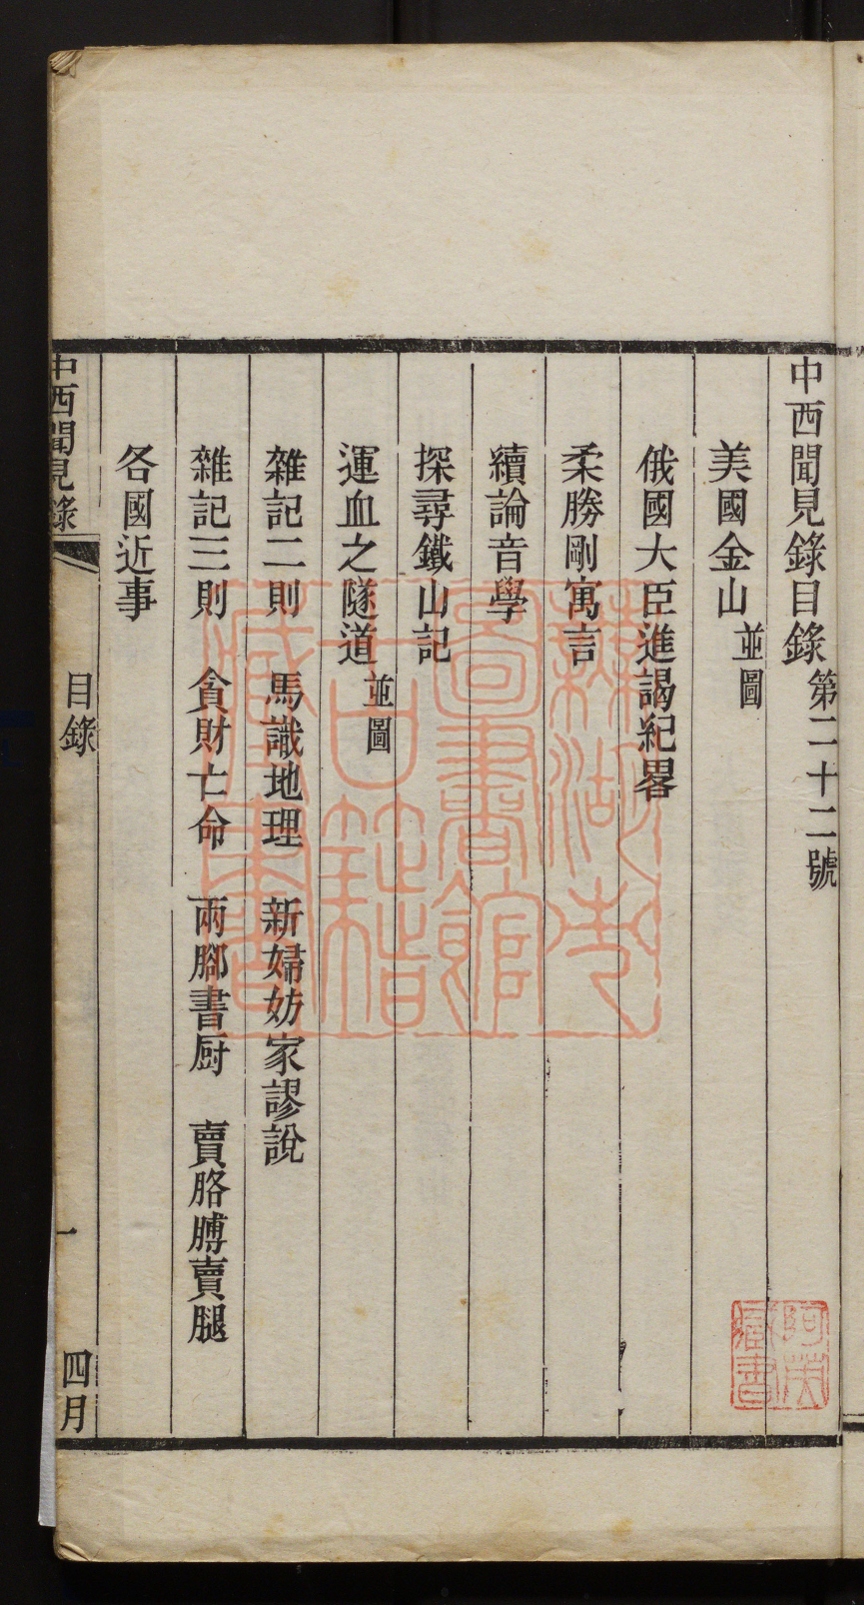 中西聞見錄目錄 第二十二號
美國金山 並圖
俄國大臣進謁紀畧
柔勝剛寓言
續論音學
探尋鐵山記
運血之隧道 並圖
雜記二則 馬識地理 新婦妨家謬說
雜記三則 貪財亡命 兩腳書厨 賣胳膊賣腿
各國近事
中西聞見錄 目錄 一 四月
蕪湖市
圖書館
古籍
藏書
阿英
藏書